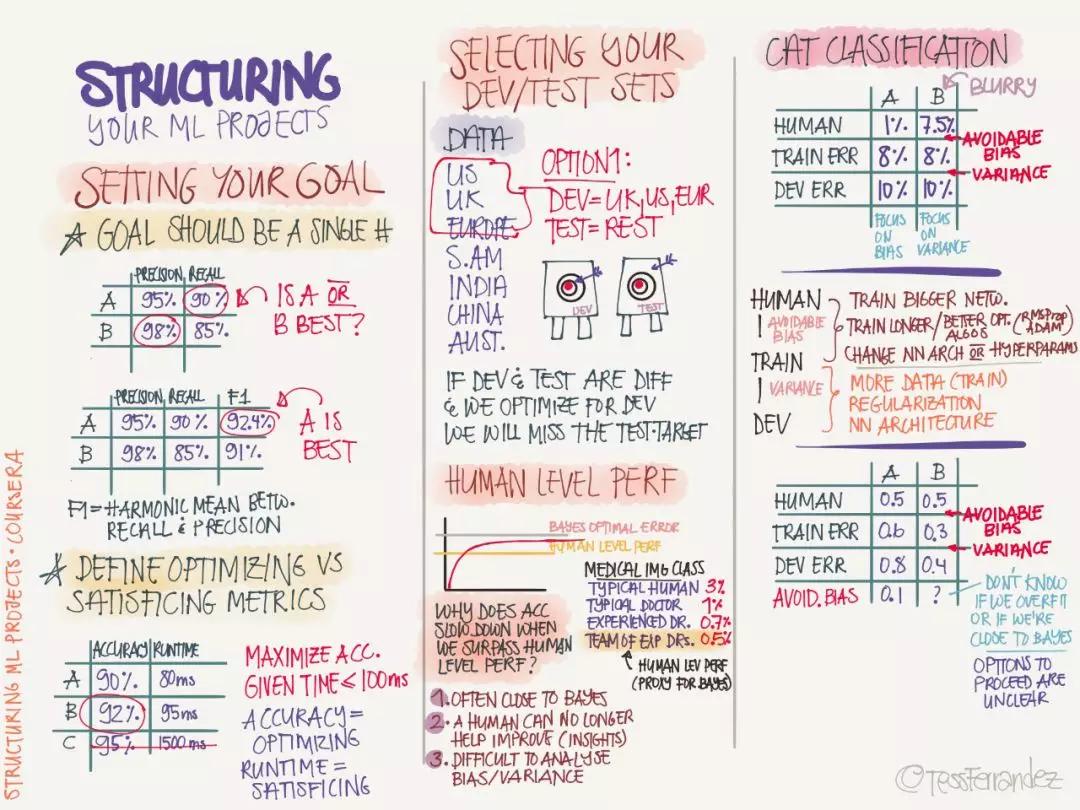 STRUCTURING
YOUR ML PROJECTS
SETTING YOUR GOAL
GOAL SHOULD BE A SINGLE #
PRECISION RECALL
A 95% 90%
B 98% 85%
IS A OR
B BEST?
PRECISION RECALL F1
A 95% 90% 92.4%
B 98% 85% 91%
A IS
BEST
F1 = HARMONIC MEAN BETW.
RECALL & PRECISION
DEFINE OPTIMIZING VS
SATISFICING METRICS
ACCURACY RUNTIME
A 90% 80ms
B 92% 95ms
C 95% 1500ms
MAXIMIZE ACC.
GIVEN TIME ≤ 100ms
ACCURACY =
OPTIMIZING
RUNTIME =
SATISFICING
STRUCTURING ML PROJECTS · COURSERA
SELECTING YOUR
DEV/TEST SETS
DATA
US
UK
EUROPE
S.AM
INDIA
CHINA
AUST.
OPTION1:
DEV=UK,US,EUR
TEST=REST
DEV
TEST
IF DEV & TEST ARE DIFF
& WE OPTIMIZE FOR DEV
WE WILL MISS THE TEST-TARGET
HUMAN LEVEL PERF
BAYES OPTIMAL ERROR
HUMAN LEVEL PERF
WHY DOES ACC
SLOW DOWN WHEN
WE SURPASS HUMAN
LEVEL PERF?
MEDICAL IMG CLASS
TYPICAL HUMAN 3%
TYPICAL DOCTOR 1%
EXPERIENCED DR. 0.7%
TEAM OF EXP DRS. 0.5%
HUMAN LEV PERF
(PROXY FOR BAYES)
1. OFTEN CLOSE TO BAYES
2. A HUMAN CAN NO LONGER
HELP IMPROVE (INSIGHTS)
3. DIFFICULT TO ANALYSE
BIAS/VARIANCE
CAT CLASSIFICATION
A B BLURRY
HUMAN 1% 7.5%
TRAIN ERR 8% 8%
DEV ERR 10% 10%
AVOIDABLE
BIAS
VARIANCE
FOCUS
ON
BIAS
FOCUS
ON
VARIANCE
HUMAN
AVOIDABLE
BIAS
TRAIN
VARIANCE
DEV
TRAIN BIGGER NETW.
TRAIN LONGER/BETTER OPT. ALGOS (RMSProp ADAM)
CHANGE NN ARCH OR HYPERPARAMS
MORE DATA (TRAIN)
REGULARIZATION
NN ARCHITECTURE
A B
HUMAN 0.5 0.5
TRAIN ERR 0.6 0.3
DEV ERR 0.8 0.4
AVOID. BIAS 0.1 ?
AVOIDABLE
BIAS
VARIANCE
DON'T KNOW
IF WE OVERFIT
OR IF WE'RE
CLOSE TO BAYES
OPTIONS TO
PROCEED ARE
UNCLEAR
@TessFerrandez